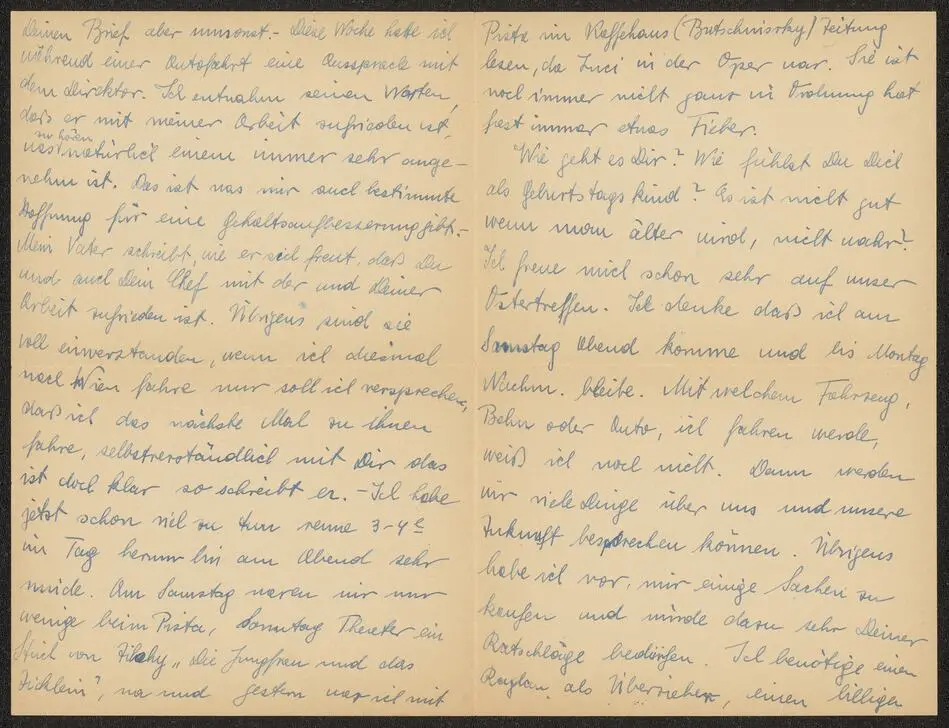 Deinen Brief aber umsonst.- Diese Woche hatte ich
während einer Autofahrt eine Aussprache mit
dem Direktor. Ich entnahm seinen Worten,
daß er mit meiner Arbeit zufrieden ist,
zu hören
was natürlich einem immer sehr ange-
nehm ist. Das ist was mir auch bestimmte
Hoffnung für eine Gehaltsaufbesserung gibt.-
Mein Vater schreibt, wie er sich freut, daß Du
und auch Dein Chef mit der und Deiner
Arbeit zufrieden ist. Übrigens sind sie
voll einverstanden, wenn ich diesmal
nach Wien fahre nur soll ich versprechen,
daß ich das nächste Mal zu ihnen
fahre, selbstverständlich mit Dir das
ist doch klar so schreibt er. - Ich habe
jetzt schon viel zu tun renne 3-4
im Tag herum bin am Abend sehr
müde. Am Samstag waren wir nur
wenige beim Pista, Sonntag Theater ein
Stück von "Die Jungfrau und das
Zicklein", na und gestern war ich mit
Pista im Kaffehaus () Zeitung
lesen, da Luci in der Oper war. Sie ist
noch immer nicht ganz in Ordnung hat
fast immer etwas Fieber.
Wie geht es Dir? Wie fühlst Du Dich
als Geburtstagskind? Es ist nicht gut
wenn man älter wird, nicht wahr?
Ich freue mich schon sehr auf unser
Ostertreffen. Ich denke daß ich am
Samstag Abend komme und bis Montag
Nachm. bleibe. Mit welchem Fahrzeug,
Bahn oder Auto, ich fahren werde,
weiß ich noch nicht. Dann werden
wir viele Dinge über uns und unsere
Zukunft besprechen können. Übrigens
habe ich vor, mir einige Sachen zu
kaufen und würde dazu sehr Deiner
Ratschläge bedürfen. Ich benötige einen
Raglan als Überzieher, einen billigen